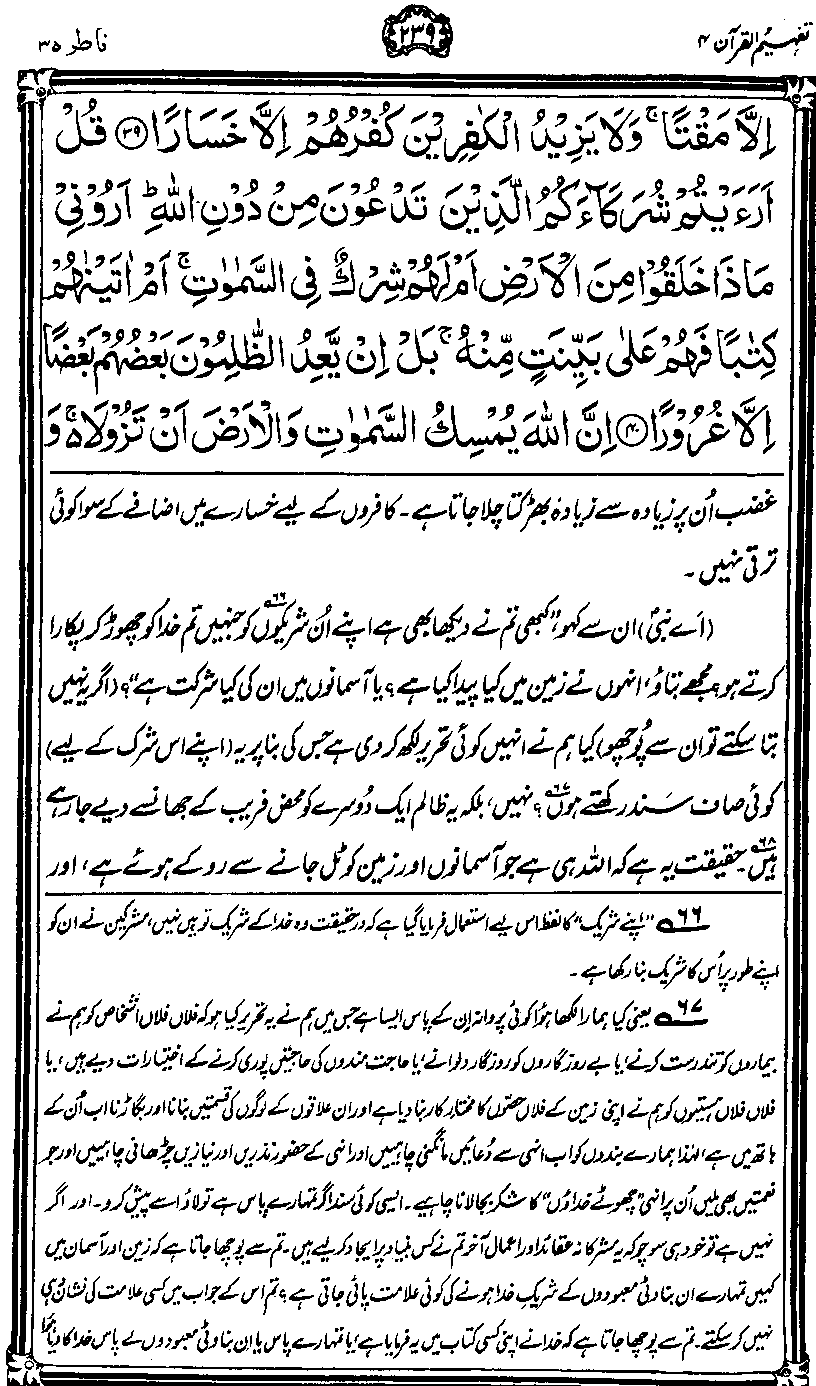 تفہیم القرآن ۴
۲۳۹
فاطر ۳۵
اِلَّا مَقْتًا ۚ وَلَا يَزِيْدُ الْكٰفِرِيْنَ كُفْرُهُمْ اِلَّا خَسَارًا ﴿۳۹﴾ قُلْ
اَرَءَيْتُمْ شُرَكَآءَكُمُ الَّذِيْنَ تَدْعُوْنَ مِنْ دُوْنِ اللّٰهِ ؕ اَرُوْنِيْ
مَاذَا خَلَقُوْا مِنَ الْاَرْضِ اَمْ لَهُمْ شِرْكٌ فِي السَّمٰوٰتِ ۚ اَمْ اٰتَيْنٰهُمْ
كِتٰبًا فَهُمْ عَلٰى بَيِّنَتٍ مِّنْهُ ۚ بَلْ اِنْ يَّعِدُ الظّٰلِمُوْنَ بَعْضُهُمْ بَعْضًا
اِلَّا غُرُوْرًا ﴿۴۰﴾ اِنَّ اللّٰهَ يُمْسِكُ السَّمٰوٰتِ وَالْاَرْضَ اَنْ تَزُوْلَا ۚ وَ
غضب اُن پر زیادہ سے زیادہ بھڑکتا چلا جاتا ہے۔ کافروں کے لیے خسارے میں اضافے کے سوا کوئی
ترقی نہیں۔
(اے نبیؐ) ان سے کہو، ”کبھی تم نے دیکھا بھی ہے اپنے اُن شریکوں۶۶ کو جنہیں تم خدا کو چھوڑ کر پکارا
کرتے ہو؟ مجھے بتاؤ، انہوں نے زمین میں کیا پیدا کیا ہے؟ یا آسمانوں میں ان کی کیا شرکت ہے“؟ (اگر یہ نہیں
بتا سکتے تو ان سے پُوچھو) کیا ہم نے انہیں کوئی تحریر لکھ کر دی ہے جس کی بنا پر یہ (اپنے اس شرک کے لیے)
کوئی صاف سَند رکھتے ہوں۶۷؟ نہیں، بلکہ یہ ظالم ایک دُوسرے کو محض فریب کے جھانسے دیے جا رہے
ہیں۶۸۔ حقیقت یہ ہے کہ اللہ ہی ہے جو آسمانوں اور زمین کو ٹل جانے سے روکے ہوئے ہے، اور
۶۶ ”اپنے شریک“ کا لفظ اس لیے استعمال فرمایا گیا ہے کہ درحقیقت وہ خدا کے شریک تو ہیں نہیں، مشرکین نے ان کو
اپنے طور پر اُس کا شریک بنا رکھا ہے۔
۶۷ یعنی کیا ہمارا لکھا ہوُا کوئی پروانہ ان کے پاس ایسا ہے جس میں ہم نے یہ تحریر کیا ہو کہ فلاں فلاں اشخاص کو ہم نے
بیماروں کو تندرست کرنے، یا بے روزگاروں کو روزگار دلوانے، یا حاجت مندوں کی حاجتیں پوری کرنے کے اختیارات دیے ہیں، یا
فلاں فلاں ہستیوں کو ہم نے اپنی زمین کے فلاں حصّوں کا مختارِ کار بنا دیا ہے اور ان علاقوں کے لوگوں کی قسمتیں بنانا اور بگاڑنا اب اُن کے
ہاتھ میں ہے، لہٰذا ہمارے بندوں کو اب انہی سے دُعائیں مانگنی چاہییں اور انہی کے حضور نذریں اور نیازیں چڑھانی چاہییں اور جو
نعمتیں بھی ملیں اُن پر انہی ”چھوٹے خداؤں“ کا شکر بجا لانا چاہیے۔ ایسی کوئی سند اگر تمہارے پاس ہے تو لاؤ اسے پیش کرو۔ اور اگر
نہیں ہے تو خود ہی سوچو کہ یہ مشرکانہ عقائد اور اعمال آخر تم نے کس بنیاد پر ایجاد کر لیے ہیں۔ تم سے پوچھا جاتا ہے کہ زمین اور آسمان میں
کہیں تمہارے ان بناوٹی معبودوں کے شریکِ خدا ہونے کی کوئی علامت پائی جاتی ہے؟ تم اس کے جواب میں کسی علامت کی نشان دہی
نہیں کر سکتے۔ تم سے پوچھا جاتا ہے کہ خدا نے اپنی کسی کتاب میں یہ فرمایا ہے، یا تمہارے پاس یا ان بناوٹی معبودوں کے پاس خدا کا دیا